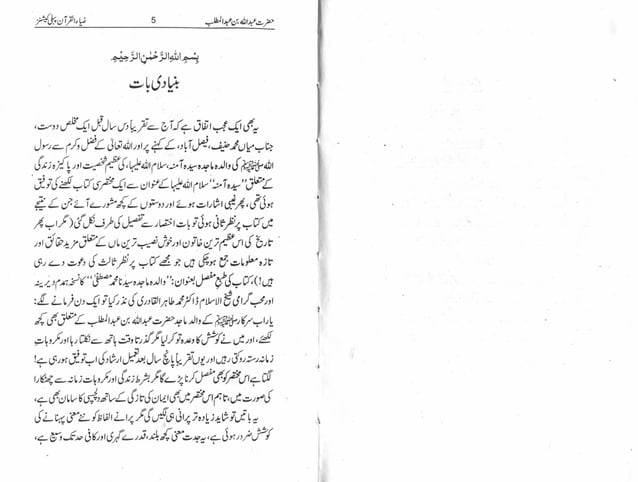 حضرت عبداللہ بن عبدالمطلب 5 ضیاء القرآن پبلی کیشنز
بِسْمِ اللهِ الرَّحْمٰنِ الرَّحِيْمِ
بنیادی بات
یہ بھی ایک عجب اتفاق ہے کہ آج سے تقریباً دس سال قبل ایک مخلص دوست،
جناب میاں محمد حنیف، فیصل آباد، کے کہنے پر اور اللہ تعالی کے فضل و کرم سے رسول
اللہ ﷺ کی والدہ ماجدہ سیدہ آمنہ، سلام اللہ علیہا، کی عظیم شخصیت اور پاکیزہ زندگی
کے متعلق "سیدہ آمنہ" سلام اللہ علیہا کے عنوان سے ایک مختصر سی کتاب لکھنے کی توفیق
ہوئی تھی، پھر غیبی اشارات ہوئے اور دوستوں کے کچھ مشورے آئے جن کے نتیجے
میں کتاب پر نظر ثانی ہوئی تو بات اختصار سے تفصیل کی طرف نکل گئی (مگر اب پھر
تاریخ کی اس عظیم ترین خاتون اور خوش نصیب ترین ماں کے متعلق مزید حقائق اور
تازہ معلومات جمع ہو چکی ہیں جو مجھے کتاب پر نظر ثالث کی دعوت دے رہی
ہیں!)، کتاب کی طبع مفصل بعنوان: "والدہ ماجدہ سیدنا محمد مصطفیٰ" کا نسخہ ہمدم دیرینہ
اور محب گرامی شیخ الاسلام ڈاکٹر محمد طاہر القادری کی نذر کیا تو ایک دن فرمانے لگے:
یار اب سرکار ﷺ کے والد ماجد حضرت عبداللہ بن عبدالمطلب کے متعلق بھی کچھ
لکھئے، اور میں نے کوشش کا وعدہ تو کر لیا مگر گذرتا وقت ہاتھ سے نکلتا رہا اور مکروہات
زمانہ رستہ روکتی رہیں اور یوں تقریباً پانچ سال بعد تعمیل ارشاد کی اب توفیق ہو رہی ہے!
لگتا ہے اس مختصر کو بھی مفصل کرنا پڑے گا مگر بشرط زندگی اور مکروہات زمانہ سے چھٹکارا
کی صورت میں، تاہم اس مختصر میں بھی ایمان کی تازگی کے ساتھ دلچسپی کا سامان بھی ہے،
یہ باتیں تو شاید زیادہ تر پرانی ہی لگیں گی مگر پرانے الفاظ کو نئے معنی پہنانے کی
کوشش ضرور ہوئی ہے، یہ جدت معنی کچھ بلند، قدرے گہری اور کافی حد تک وسیع ہے،